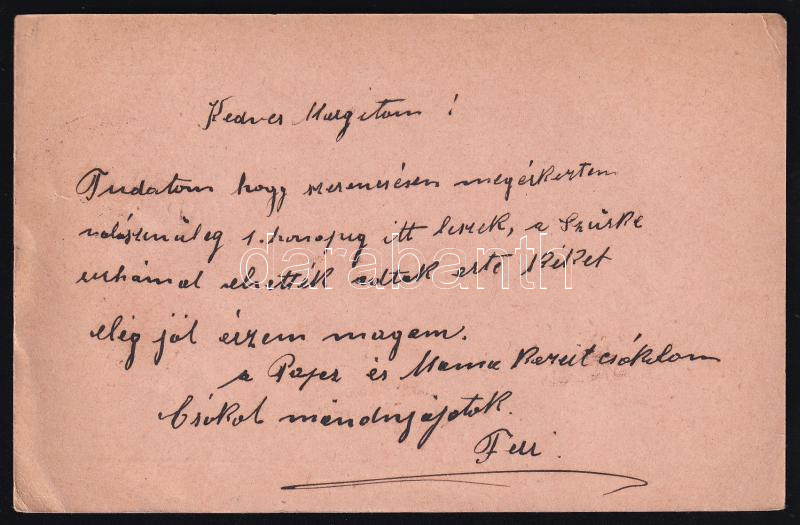 Kedves Margitom!
Tudatom hogy szerencsésen megérkeztem
valószinüleg 1. honapig itt leszek, a Szürke
ruhámat elvették adtak erte Kéket
elég jól érzem magam.
a Papa és Mama kezeit csókolom
Csókol mindnyájatok.
Feri.
darabanth